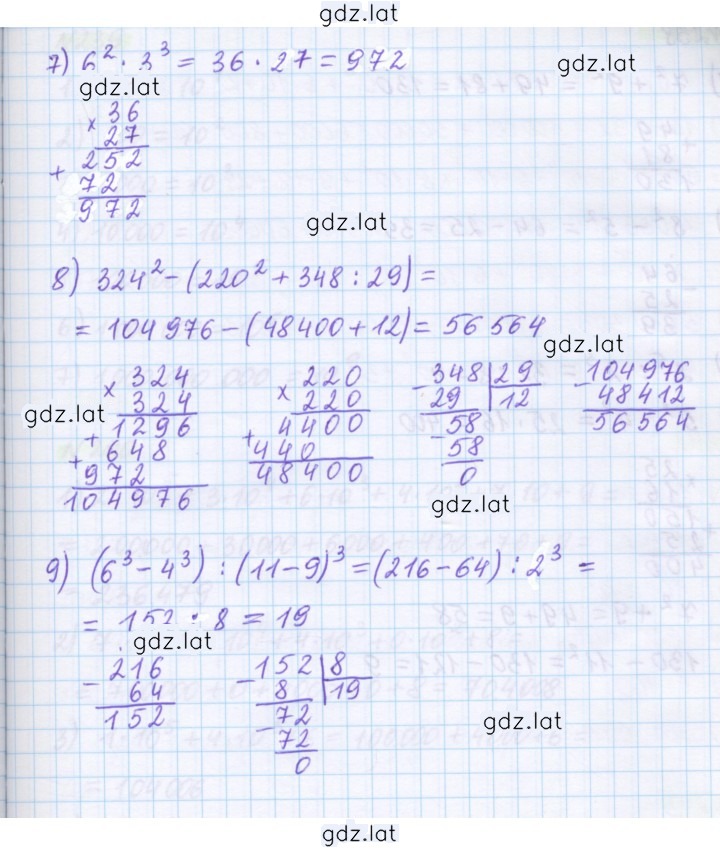 gdz.lat
7) 6² · 3³ = 36 · 27 = 972
gdz.lat
gdz.lat
× 36
27
+ 252
72
972
gdz.lat
8) 324² - (220² + 348 : 29) =
= 104 976 - (48400 + 12) = 56 564
gdz.lat
× 324
324
+ 1296
+ 648
972
104976
gdz.lat
× 220
220
+ 4400
440
48400
- 348 | 29
29 | 12
- 58
58
0
- 104 976
48412
56564
gdz.lat
9) (6³ - 4³) : (11 - 9)³ = (216 - 64) : 2³ =
= 152 : 8 = 19
gdz.lat
- 216
64
152
- 152 | 8
8 | 19
- 72
72
0
gdz.lat
gdz.lat